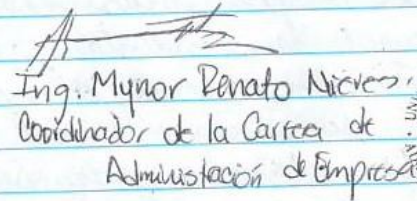 Ing. Mynor Renato Nieves.
Coordinador de la Carrera de
Administración de Empresa